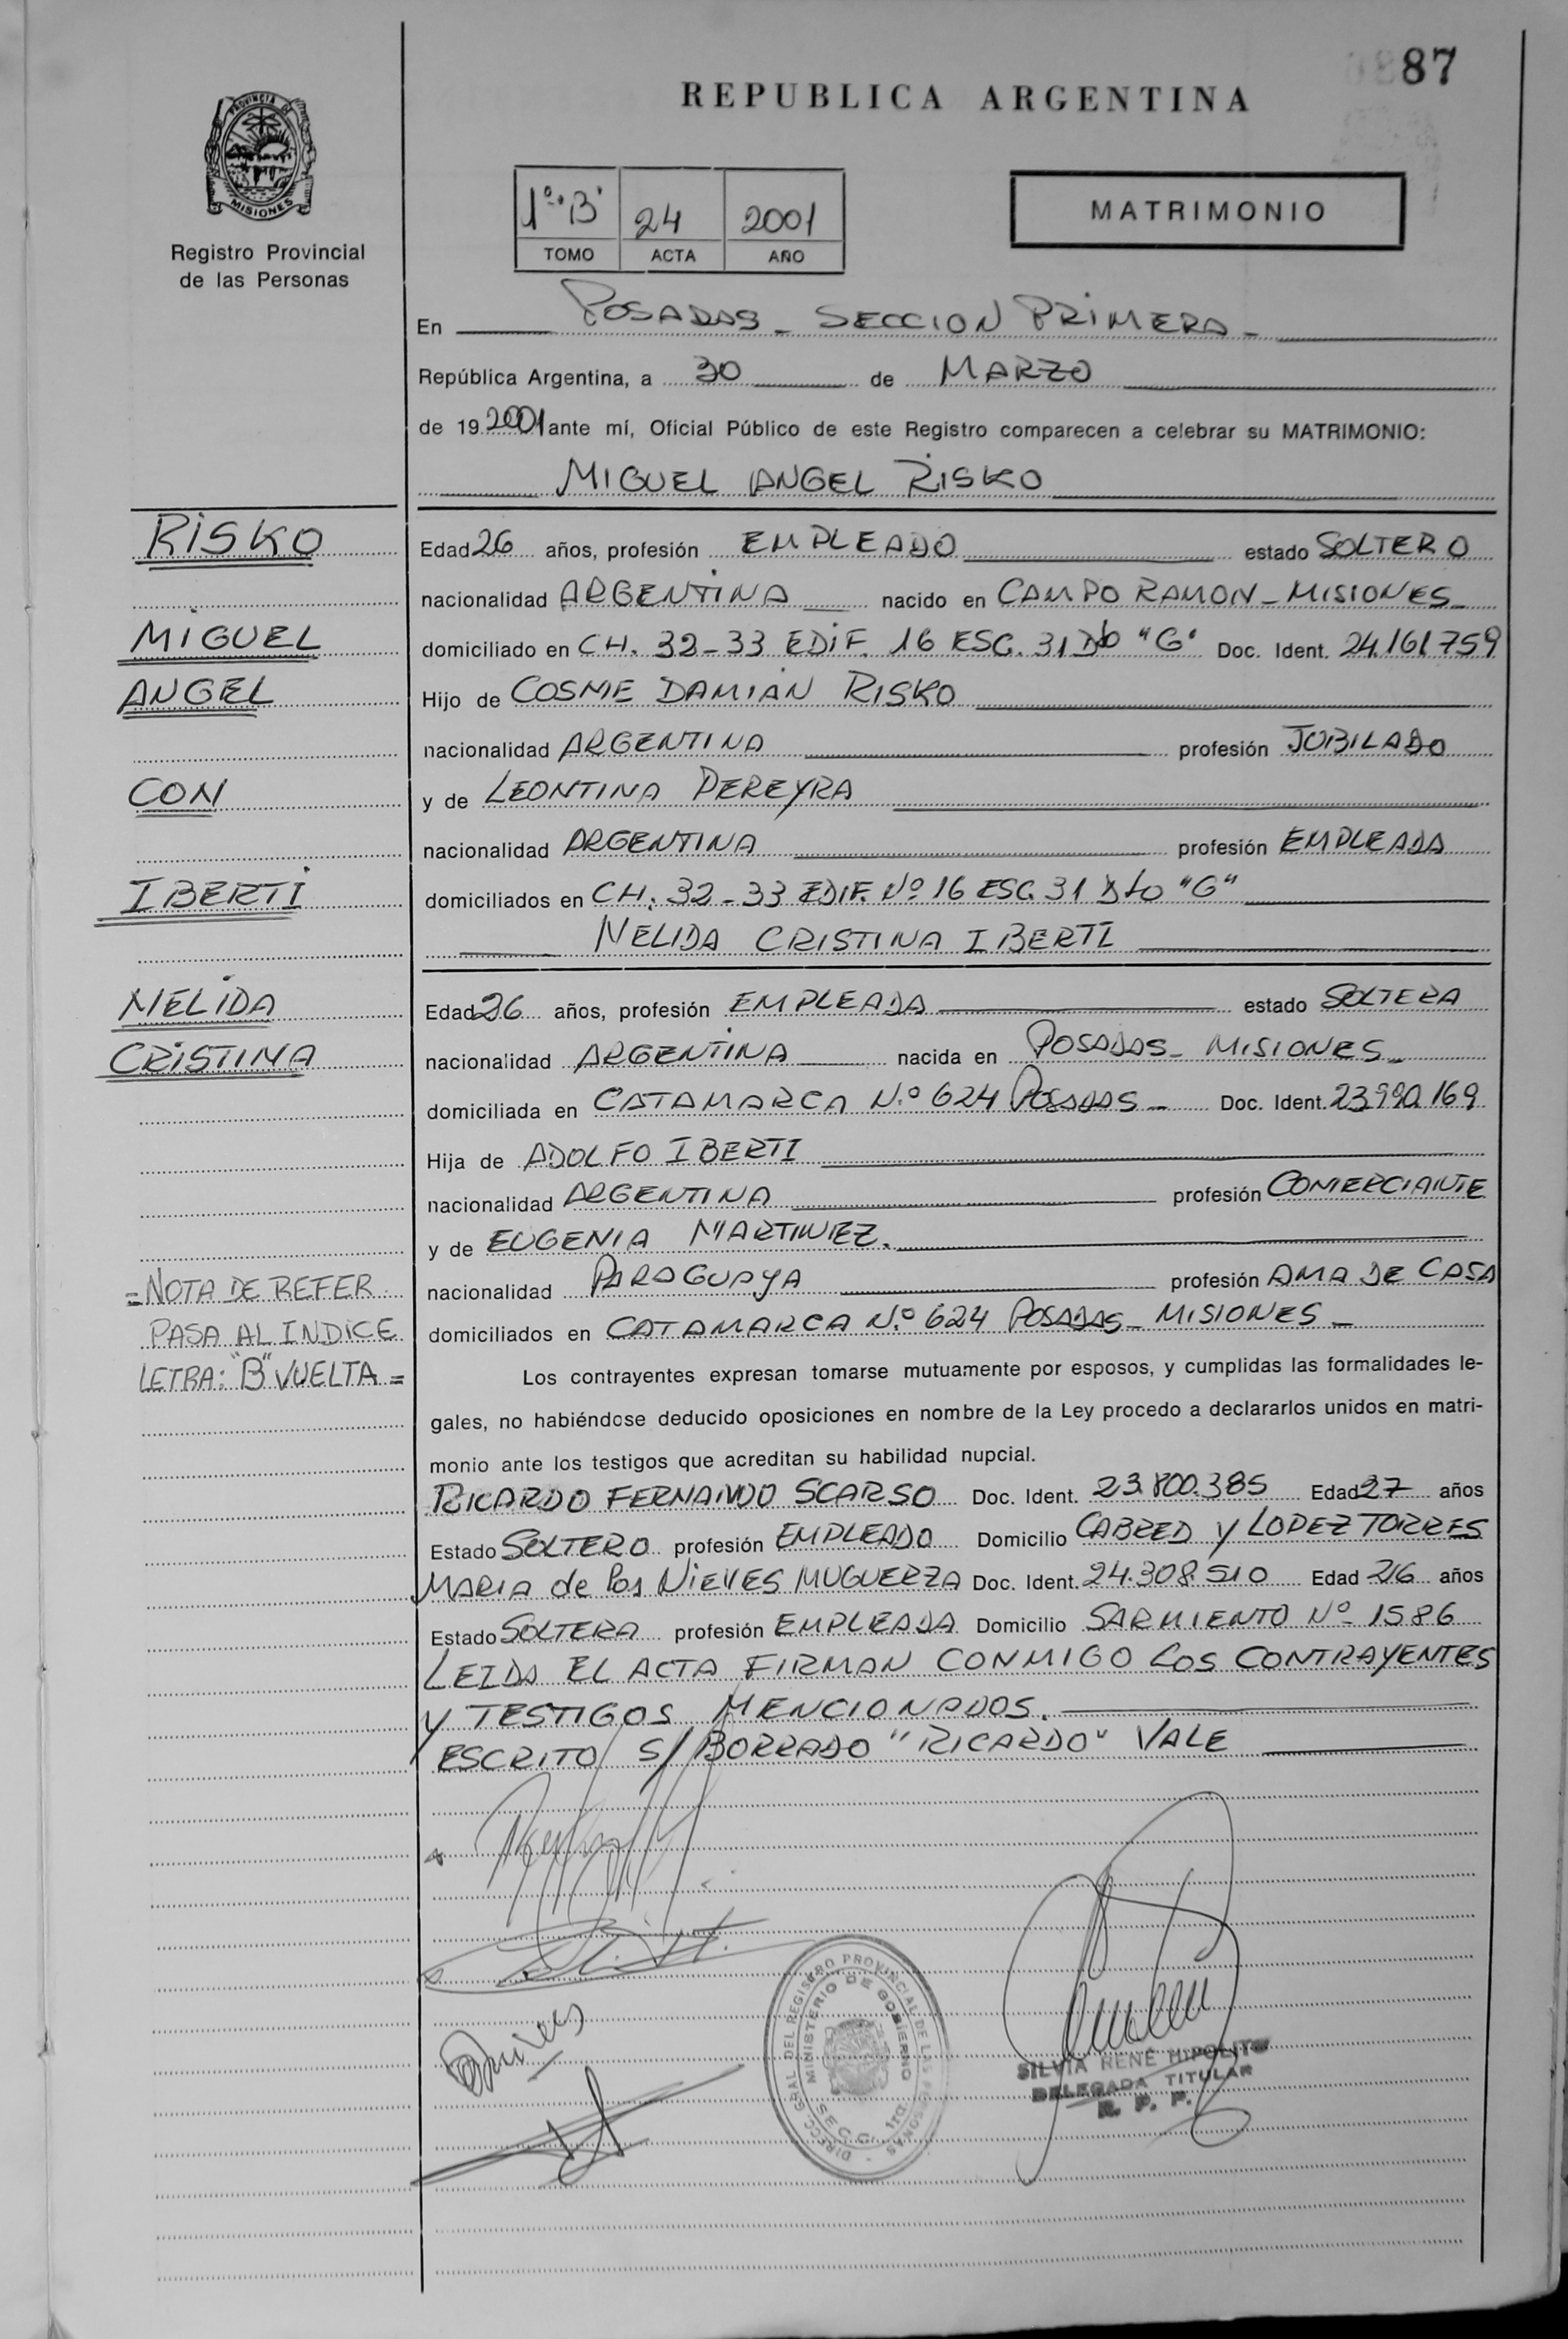 87
REPUBLICA ARGENTINA
PROVINCIA DE
MISIONES
Registro Provincial
de las Personas
1º "B" 24 2001
TOMO ACTA AÑO
MATRIMONIO
En POSADAS - SECCION PRIMERA -
República Argentina, a 30 de MARZO
de 19 2001 ante mí, Oficial Público de este Registro comparecen a celebrar su MATRIMONIO:
MIGUEL ANGEL RISKO
RISKO
Edad 26 años, profesión EMPLEADO estado SOLTERO
nacionalidad ARGENTINA nacido en CAMPO RAMON - MISIONES
MIGUEL
domiciliado en CH. 32-33 EDIF. 16 ESC. 31 Dto "G" Doc. Ident. 24.161.759
ANGEL
Hijo de COSME DAMIAN RISKO
nacionalidad ARGENTINA profesión JUBILADO
CON
y de LEONTINA PEREYRA
nacionalidad ARGENTINA profesión EMPLEADA
IBERTI
domiciliados en CH. 32-33 EDIF. Nº 16 ESC. 31 Dto "G"
NELIDA CRISTINA IBERTI
NELIDA
Edad 26 años, profesión EMPLEADA estado SOLTERA
CRISTINA
nacionalidad ARGENTINA nacida en POSADAS - MISIONES
domiciliada en CATAMARCA N.º 624 POSADAS - Doc. Ident. 23.990.169
Hija de ADOLFO IBERTI
nacionalidad ARGENTINA profesión COMERCIANTE
y de EUGENIA MARTINEZ.
=NOTA DE REFER.
nacionalidad PARAGUAYA profesión AMA DE CASA
PASA AL INDICE
domiciliados en CATAMARCA N.º 624 POSADAS - MISIONES -
LETRA: "B" VUELTA =
Los contrayentes expresan tomarse mutuamente por esposos, y cumplidas las formalidades le-
gales, no habiéndose deducido oposiciones en nombre de la Ley procedo a declararlos unidos en matri-
monio ante los testigos que acreditan su habilidad nupcial.
RICARDO FERNANDO SCARSO Doc. Ident. 23.800.385 Edad 27 años
Estado SOLTERO profesión EMPLEADO Domicilio CABRED Y LOPEZ TORRES
MARIA de los NIEVES MUGUERZA Doc. Ident. 24.308.510 Edad 26 años
Estado SOLTERA profesión EMPLEADA Domicilio SARMIENTO Nº 1586
LEIDA EL ACTA FIRMAN CONMIGO LOS CONTRAYENTES
Y TESTIGOS MENCIONADOS.
ESCRITO S/ BORRADO "RICARDO" VALE
DIRECC. GRAL. DEL REGISTRO PROVINCIAL DE LAS PERSONAS
MINISTERIO DE GOBIERNO
SECC. 1ra.
SILVIA RENÉ HIPOLITO
DELEGADA TITULAR
R. P. P.